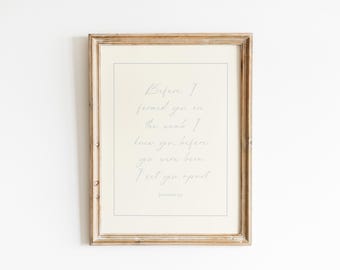 Before I
formed you in
the womb I
knew you before
you were born
I set you apart